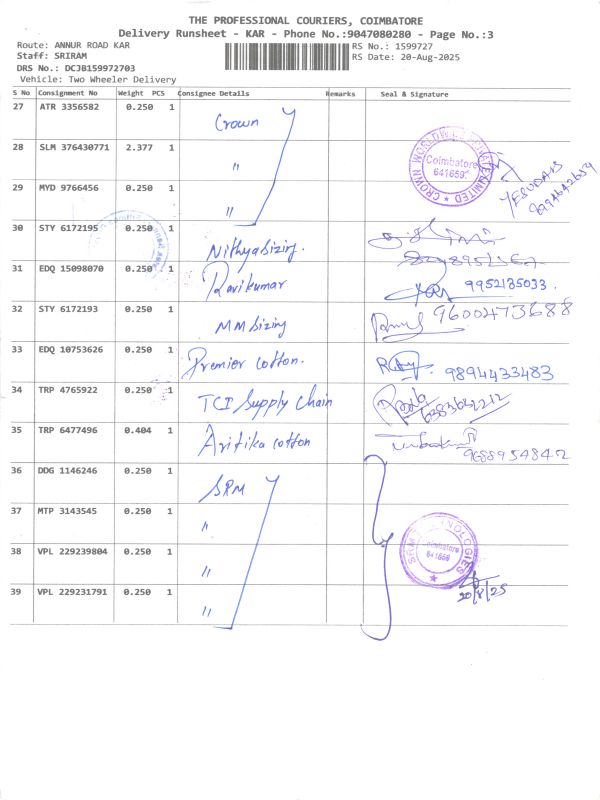 THE PROFESSIONAL COURIERS, COIMBATORE
Delivery Runsheet - KAR - Phone No.:9047080280 - Page No.:3
Route: ANNUR ROAD KAR RS No.: 1599727
Staff: SRIRAM RS Date: 20-Aug-2025
DRS No.: DCJB159972703
Vehicle: Two Wheeler Delivery
S No Consignment No Weight PCS Consignee Details Remarks Seal & Signature
27 ATR 3356582 0.250 1 Crown
28 SLM 376430771 2.377 1 "
CROWN WORLDWIDE PRIVATE LIMITED
Coimbatore
641659
YESUDAS
9994642659
29 MYD 9766456 0.250 1 "
30 STY 6172195 0.250 1 Nithya Sizing.
31 EDQ 15098070 0.250 1 Ravikumar 9952135033.
32 STY 6172193 0.250 1 MM Sizing 9600473688
33 EDQ 10753626 0.250 1 Premier Cotton. 9894433483
34 TRP 4765922 0.250 1 TCI Supply Chain 6383632212
35 TRP 6477496 0.404 1 Aritika Cotton 9688954842
36 DDG 1146246 0.250 1 SRM
37 MTP 3143545 0.250 1 "
38 VPL 229239804 0.250 1 "
SRM TECHNOLOGIES
Coimbatore
641659
39 VPL 229231791 0.250 1 "
20/8/25